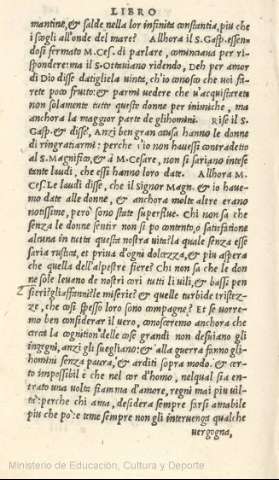 LIBRO
mantine, & salde nella lor infinita constantia, piu che
i scogli all'onde del mare? Allhora il S. Gasp. essen-
dosi fermato M. Ces. di parlare, cominciana per ri-
spondere: ma il S. Ottauiano ridendo, Deh per amor
di Dio disse datigliela uinta, ch'io conosco che uoi fa-
rete poco frutto: & parmi uedere che u'acquistareti
non solamente tutte queste donne per inimiche, ma
anchora la maggior parte de glihomini. Rise il S.
Gasp. & disse, Anzi ben gran causa hanno le donne
di ringratiarmi: perche s'io non hauessi contradetto
al S. Magnifico, & à M. Cesare, non si sariano intese
tante laudi, che essi hanno lor date. Allhora M.
Ces. Le laudi disse, che il Signor Magn. & io haue-
mo date alle donne, & anchora molte altre erano
notissime, però sono state superflue. Chi non sa che
senza le donne sentir non si po contento, o satisfatione
alcuna in tutta questa nostra uita? la quale senza esse
saria rustica, et priua d'ogni dolcezza, et piu aspera
che quella dell'alpestre fiere? Chi non sa che le don
ne sole leuano de nostri cori tutti li uili, et bassi pen
sieri? gli affanni? le miserie? & quelle turbide tristez-
ze, che cosi spesso loro sono compagne? Et se uorre-
mo ben considerar il uero, conosceremo anchora che
circa la cognition delle cose grandi non desuiano gli
ingegni, anzi gli suegliano: & alla guerra fanno gli-
homini senza paura, & arditi sopra modo. & cer-
to impossibil è che nel cor d'homo, nelqual sia en-
trato una uolta fiamma d'amore, regni mai piu uil-
tà: perche chi ama, desidera sempre farsi amabile
piu che po: e teme sempre non gli interuenga qualche
uergogna,
Ministerio de Educación, Cultura y Deporte